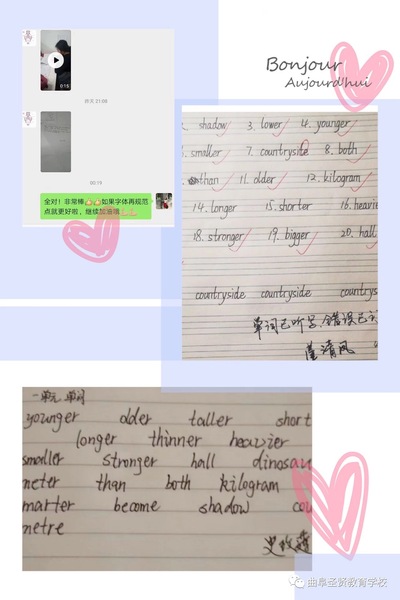 0:15
昨天 21:08
00:19
全对！非常棒如果字体再规范
点就更好啦，继续加油哦
Bonjour
Aujourd'hui
shadow 3. lower 4. younger
smaller 7. countryside 8. both
than 11. older 12. kilogram
14. longer 15. shorter 16. heavie
18. stronger 19. bigger 20. hall
countryside countryside countrys
单词已听写,错误已订
一单元 单词
younger older taller short
longer thinner heavier
smaller stronger hall dinosau
meter than both kilogram
marter become shadow cou
metre
曲阜圣贤教育学校